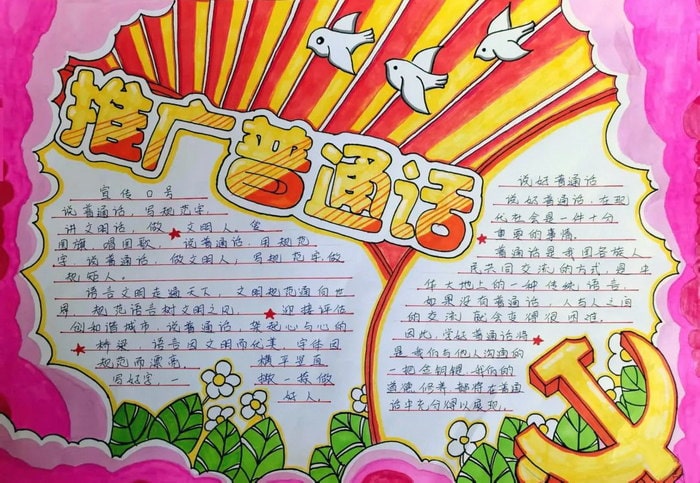 推广普通话
宣传口号
说普通话，写规范字
讲文明话，做文明人。
国旗 唱国歌， 说普通话，用规范
字 说普通话，做文明人，写规范字做
规范人。
语言文明走遍天下 文明规范通向世
界 规范语言树文明之风， 迎接评估
创和谐城市，说普通话，架起心与心的
桥梁 语言因文明而优美，字体因
规范而漂亮 横平竖直
写好字，一 撇一捺做
好人。
说好普通话
说好普通话，在现
代社会是一件十分
重要的事情。
普通话是我国各族人
民共同交流的方式，是中
华大地上的一种传统语言，
如果没有普通话，人与人之间
的交流 就会变得很困难。
因此，学好普通话将
是我们与他人沟通的
一把金钥匙，我们的
道德、修养 都将在普通
话中充分得以展现。